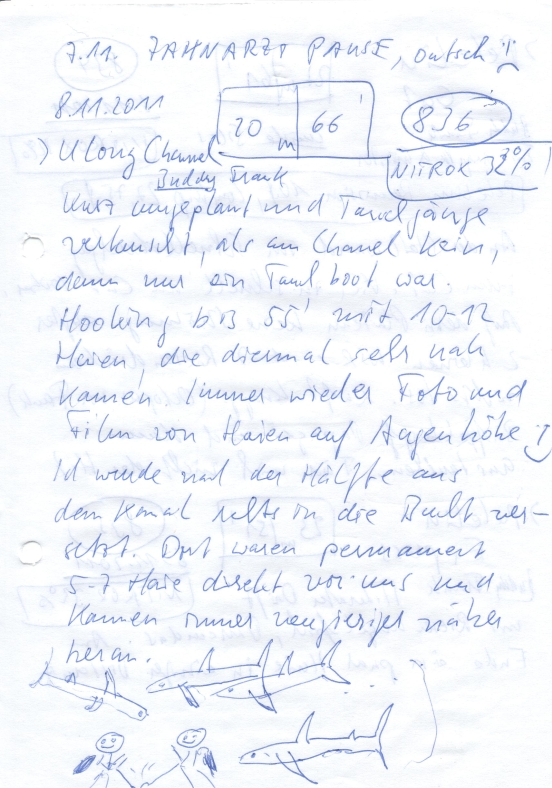 7.11. ZAHNARZT PAUSE, autsch !
8.11.2011
20 m 66' 836
) Ulong Channel
NITROX 32%
Buddy Frank
Kurz umgeplant und Tauchgänge
vertauscht, als am Channel kein,
dann nur ein Tauchboot war.
Hooking bis 55' mit 10-12
Haien, die diesmal sehr nah
kamen. Immer wieder Foto und
Film von Haien auf Augenhöhe :)
Ich wurde nach der Hälfte aus
dem Kanal rechts in die Bucht ver-
setzt. Dort waren permanent
5-7 Haie direkt vor uns und
kamen immer neugieriger näher
heran.